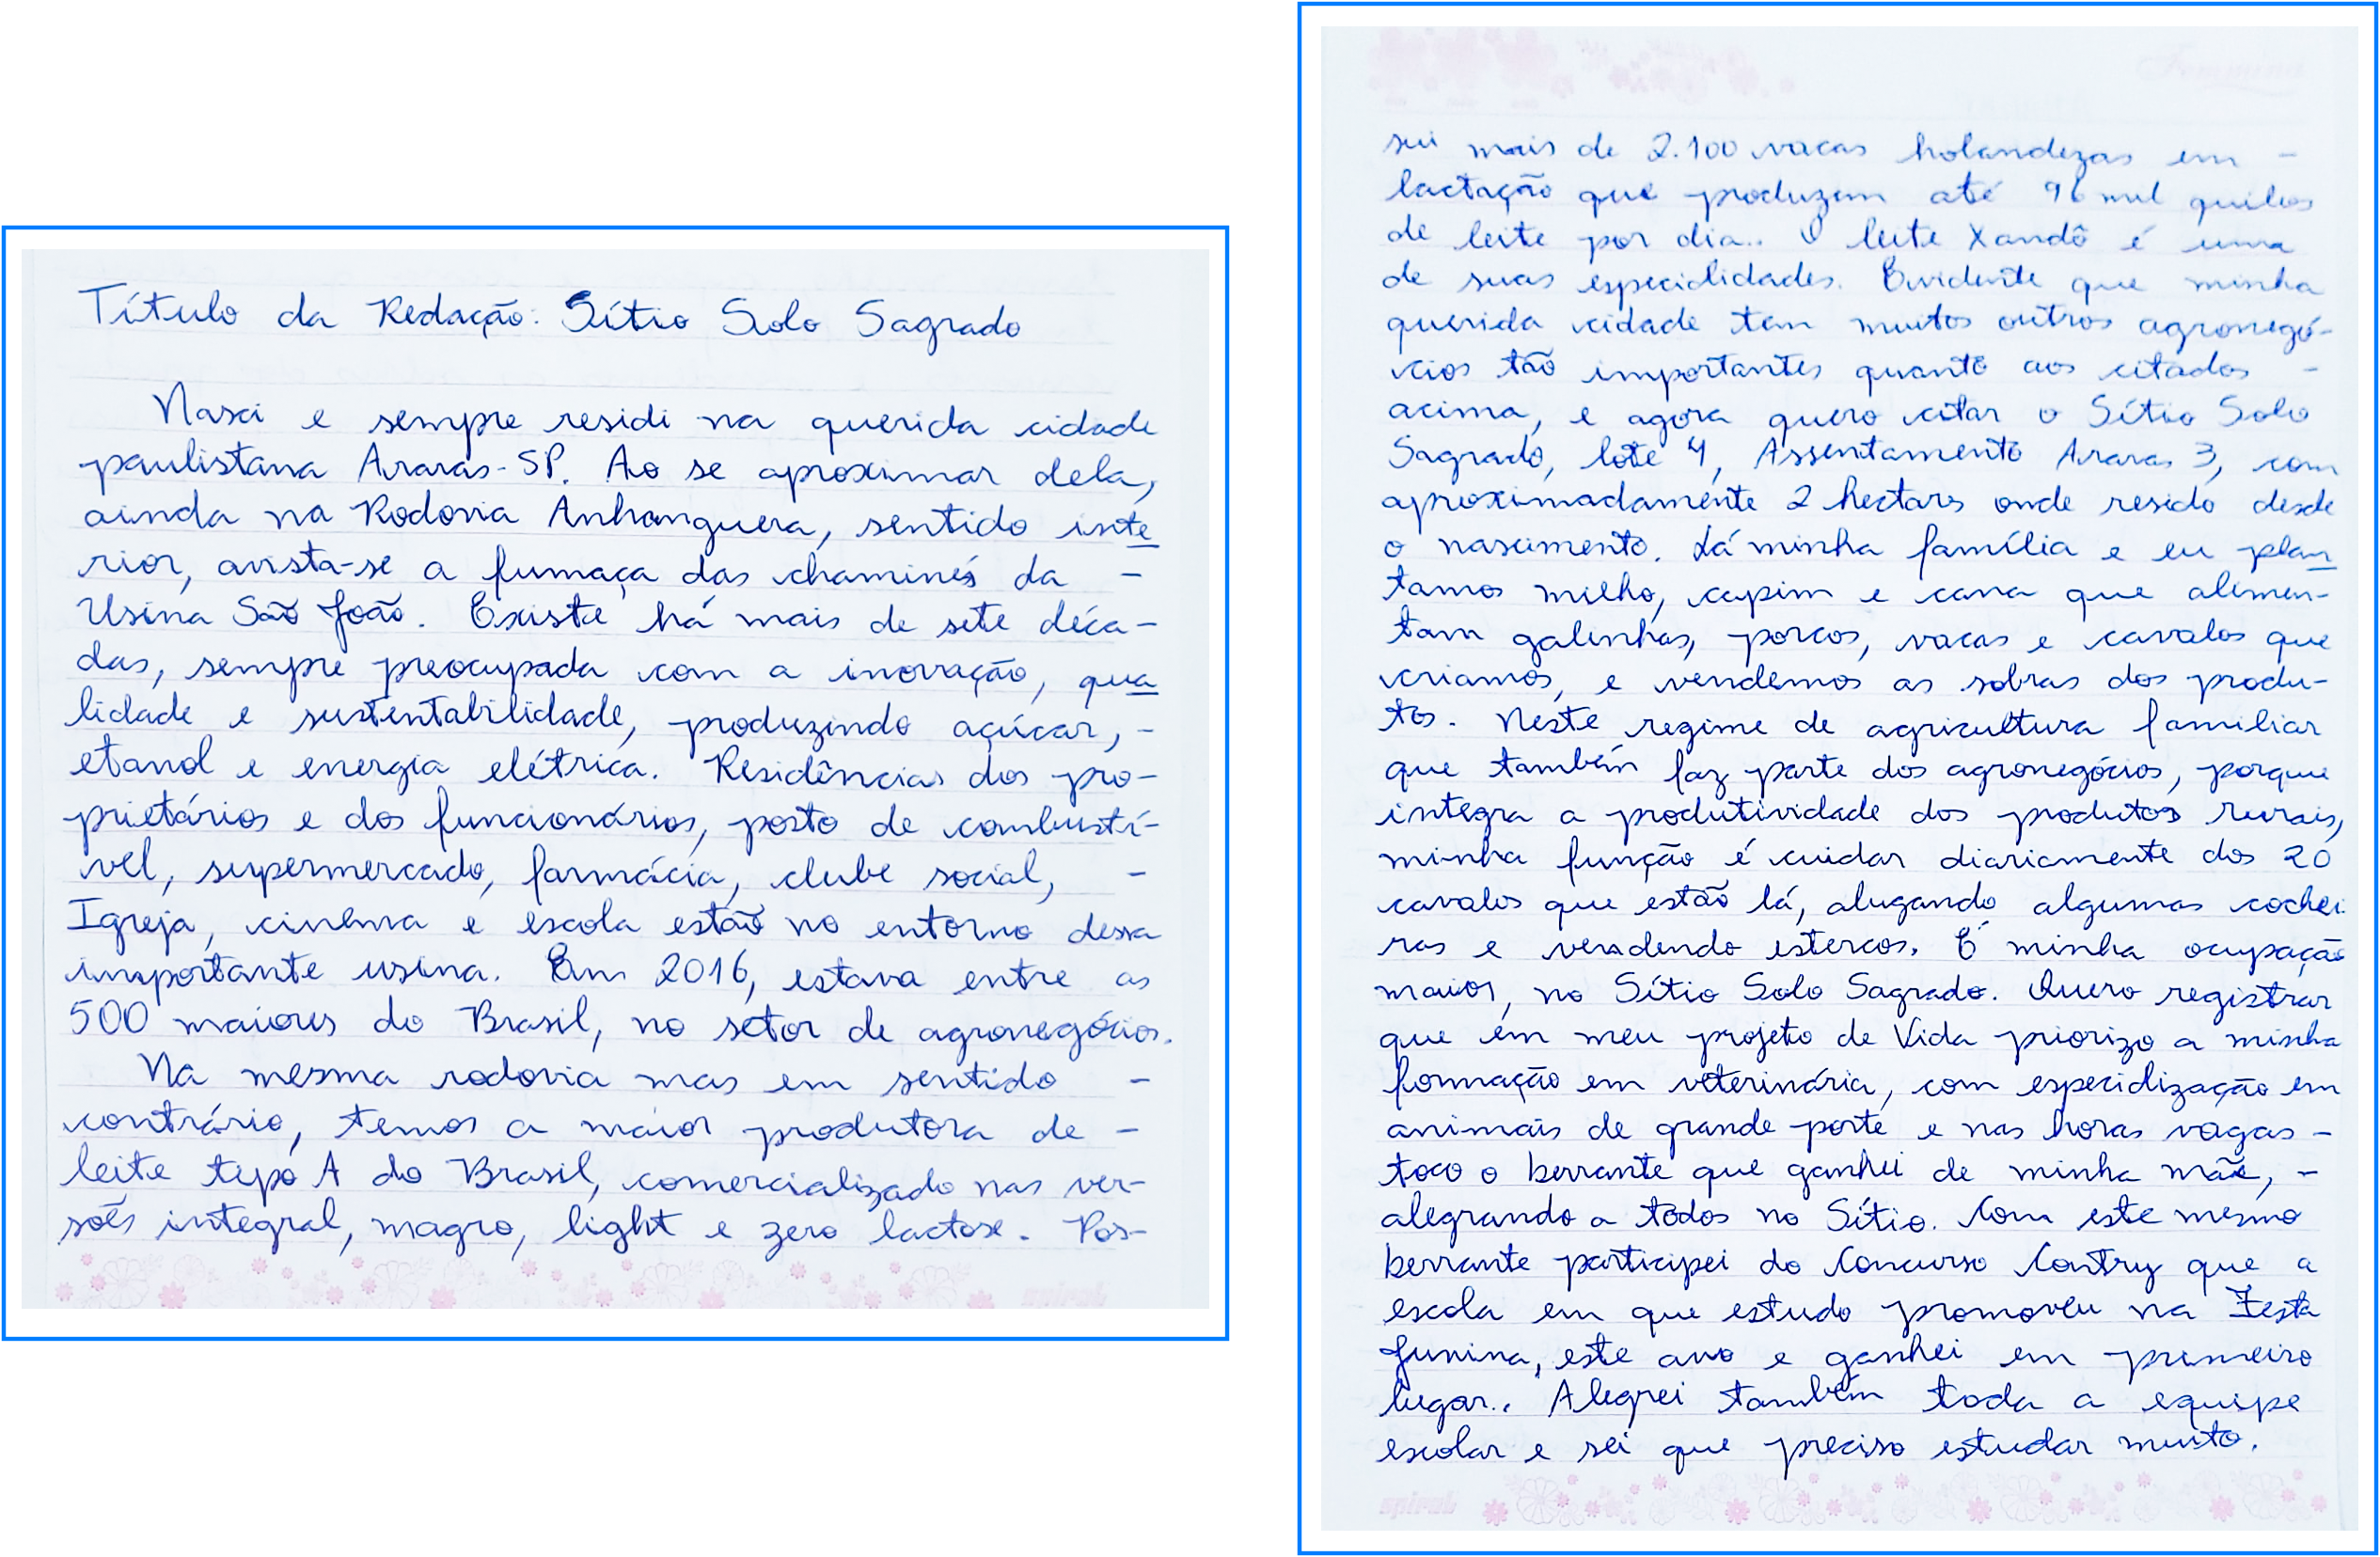 Título da Redação: Sítio Solo Sagrado
Nasci e sempre residi na querida cidade
paulistana Araras-SP. Ao se aproximar dela,
ainda na Rodovia Anhanguera, sentido inte
rior, avista-se a fumaça das chaminés da -
Usina São João. Existe há mais de sete déca-
das, sempre preocupada com a inovação, qua
lidade e sustentabilidade, produzindo açúcar, -
etanol e energia elétrica. Residências dos pro-
prietários e dos funcionários, posto de combustí-
vel, supermercado, farmácia, clube social, -
Igreja, cinema e escola estão no entorno dessa
importante usina. Em 2016, estava entre as
500 maiores do Brasil, no setor de agronegócios.
Na mesma rodovia mas em sentido -
contrário, temos a maior produtora de -
leite tipo A do Brasil, comercializado nas ver-
sões integral, magro, light e zero lactose. Pos-
sui mais de 2.100 vacas holandezas em -
lactação que produzem até 96 mil quilos
de leite por dia.. O leite Xandô é uma
de suas especialidades. Evidente que minha
querida cidade tem muitos outros agronegó-
cios tão importantes quanto aos citados -
acima, e agora quero citar o Sítio Solo
Sagrado, lote 4, Assentamento Araras 3, com
aproximadamente 2 hectares onde resido desde
o nascimento. Lá minha família e eu plan
tamos milho, capim e cana que alimen-
tam galinhas, porcos, vacas e cavalos que
criamos, e vendemos as sobras dos produ-
tos. Neste regime de agricultura familiar
que também faz parte dos agronegócios, porque
integra a produtividade dos produtos rurais,
minha função é cuidar diariamente dos 20
cavalos que estão lá, alugando algumas cochei
ras e vendendo estercos. É minha ocupação
maior, no Sítio Solo Sagrado. Quero registrar
que em meu projeto de Vida priorizo a minha
formação em veterinária, com especialização em
animais de grande porte e nas horas vagas -
toco o berrante que ganhei de minha mãe, -
alegrando a todos no Sítio. Com este mesmo
berrante participei do Concurso Contry que a
escola em que estudo promoveu na Festa
Junina, este ano e ganhei em primeiro
lugar.. Alegrei também toda a equipe
escolar e sei que preciso estudar muito.
spiral